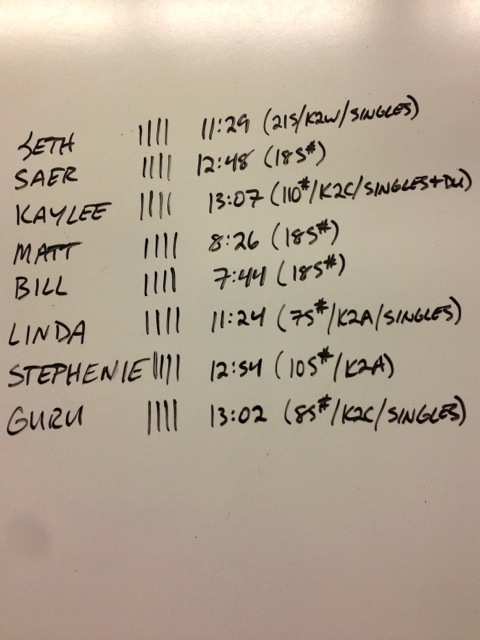 SETH |||| 11:29 (215/K2W/SINGLES)
SAER |||| 12:48 (185#)
KAYLEE |||| 13:07 (110#/K2C/SINGLES+DU)
MATT |||| 8:26 (185#)
BILL |||| 7:44 (185#)
LINDA |||| 11:24 (75#/K2A/SINGLES)
STEPHENIE |||| 12:54 (105#/K2A)
GURU |||| 13:02 (85#/K2C/SINGLES)